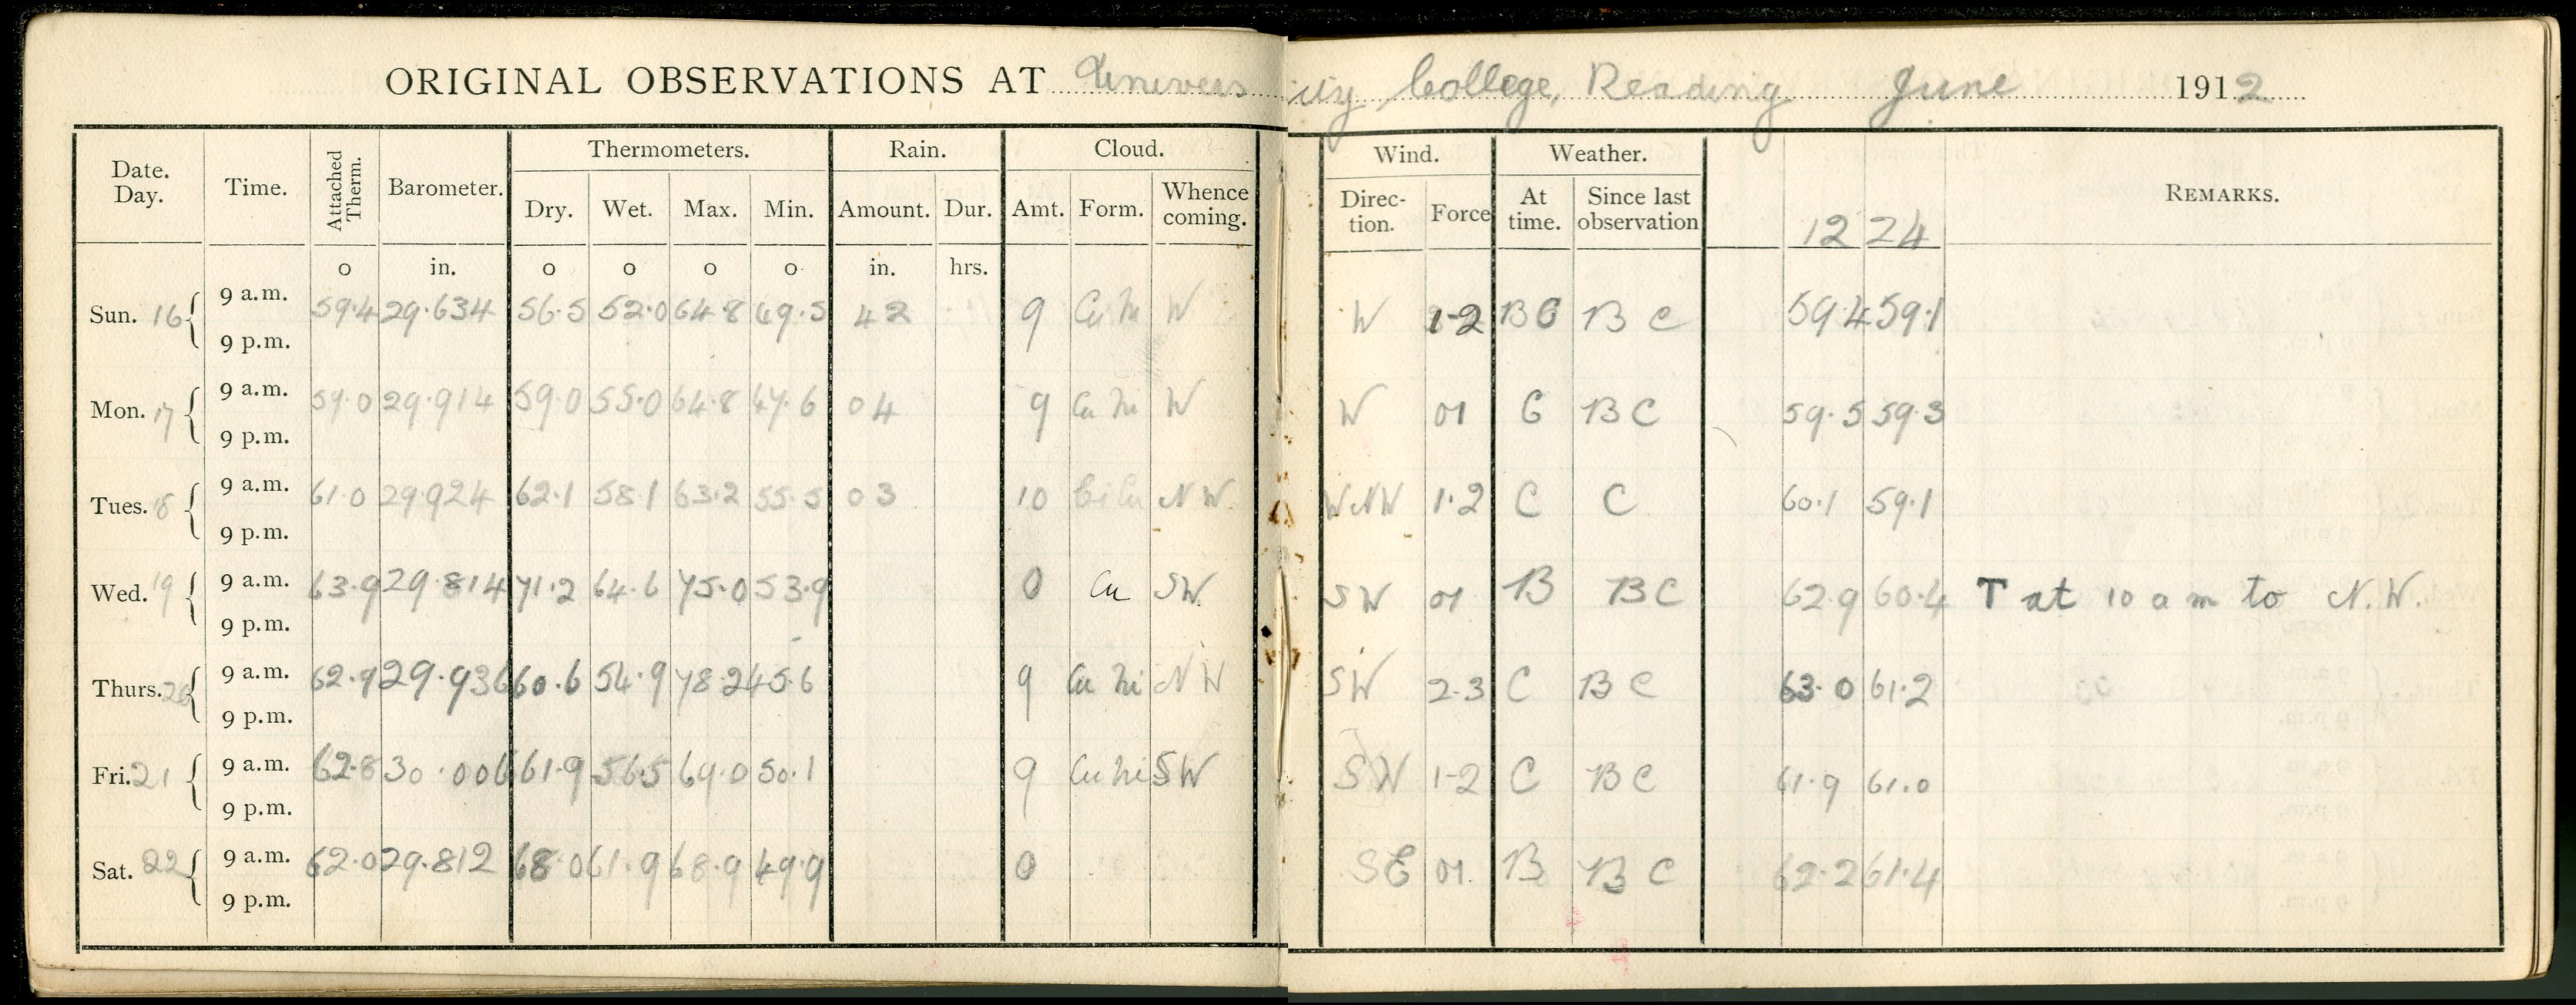 ORIGINAL OBSERVATIONS AT University College, Reading June 1912
Date. Day. Time. Attached Therm. Barometer. Thermometers. Rain. Cloud. Wind. Weather. REMARKS.
Dry. Wet. Max. Min. Amount. Dur. Amt. Form. Whence coming. Direc- tion. Force At time. Since last observation 12 24
o in. o o o o in. hrs.
Sun. 16 { 9 a.m. 59.4 29.634 56.5 52.0 64.8 49.5 42 9 Cu Ni W W 1-2 BC B C 59.4 59.1
9 p.m.
Mon. 17 { 9 a.m. 59.0 29.914 59.0 55.0 64.8 47.6 04 9 Cu Ni W W 01 C B C 59.5 59.3
9 p.m.
Tues. 18 { 9 a.m. 61.0 29.924 62.1 58.1 63.2 55.5 03 10 Ci Cu N W. WNW 1.2 C C 60.1 59.1
9 p.m.
Wed. 19 { 9 a.m. 63.9 29.814 71.2 64.6 75.0 53.9 0 Cu SW. SW 01 B B C 62.9 60.4 T at 10 a m to N.W.
9 p.m.
Thurs. 20 { 9 a.m. 62.9 29.936 60.6 54.9 78.2 45.6 9 Cu Ni N W SW 2-3 C B C 63.0 61.2
9 p.m.
Fri. 21 { 9 a.m. 62.8 30.006 61.9 56.5 69.0 50.1 9 Cu Ni SW SW 1-2 C B C 61.9 61.0
9 p.m.
Sat. 22 { 9 a.m. 62.0 29.812 68.0 61.9 68.9 49.9 0 SE 01. B B C 62.2 61.4
9 p.m.